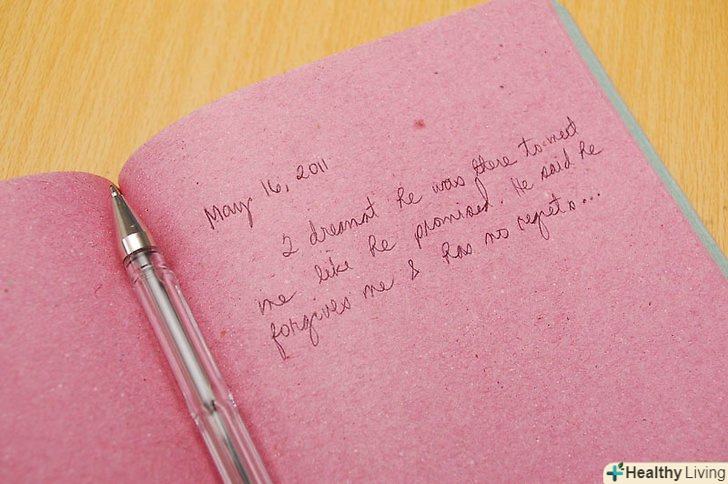 May 16, 2011
I dreamt he was there to meet
me like he promised. He said he
forgives me & has no regrets...
Healthy Living